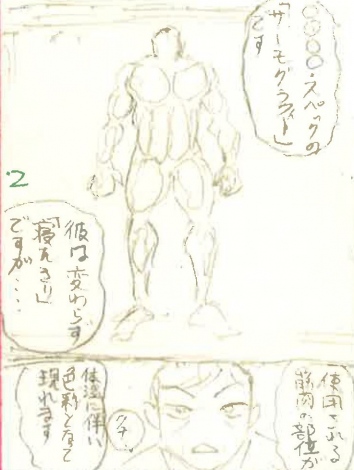 ○○○○・スペックの
「サーモグラフィー」
です
2
彼は変わらず
「寝たきり」
ですが…
使用される
筋肉の部位が
体温に伴い
色彩となって
現れます